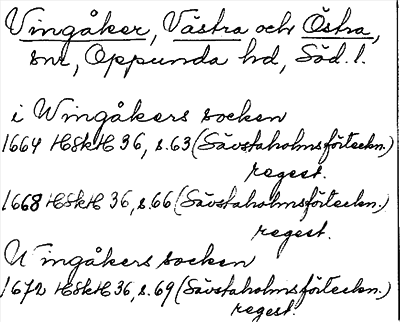 Vingåker, Västra och Östra,
snr, Oppunda hd, Söd. l.
i Wingåkers socken
1664 HSkH 36, s. 63 (Sävstaholmsförteckn.)
regest.
1668 HSkH 36, s. 66 (Sävstaholmsförteckn.)
regest.
Wingåkers socken
1672 HSkH 36, s. 69 (Sävstaholmsförteckn.)
regest.